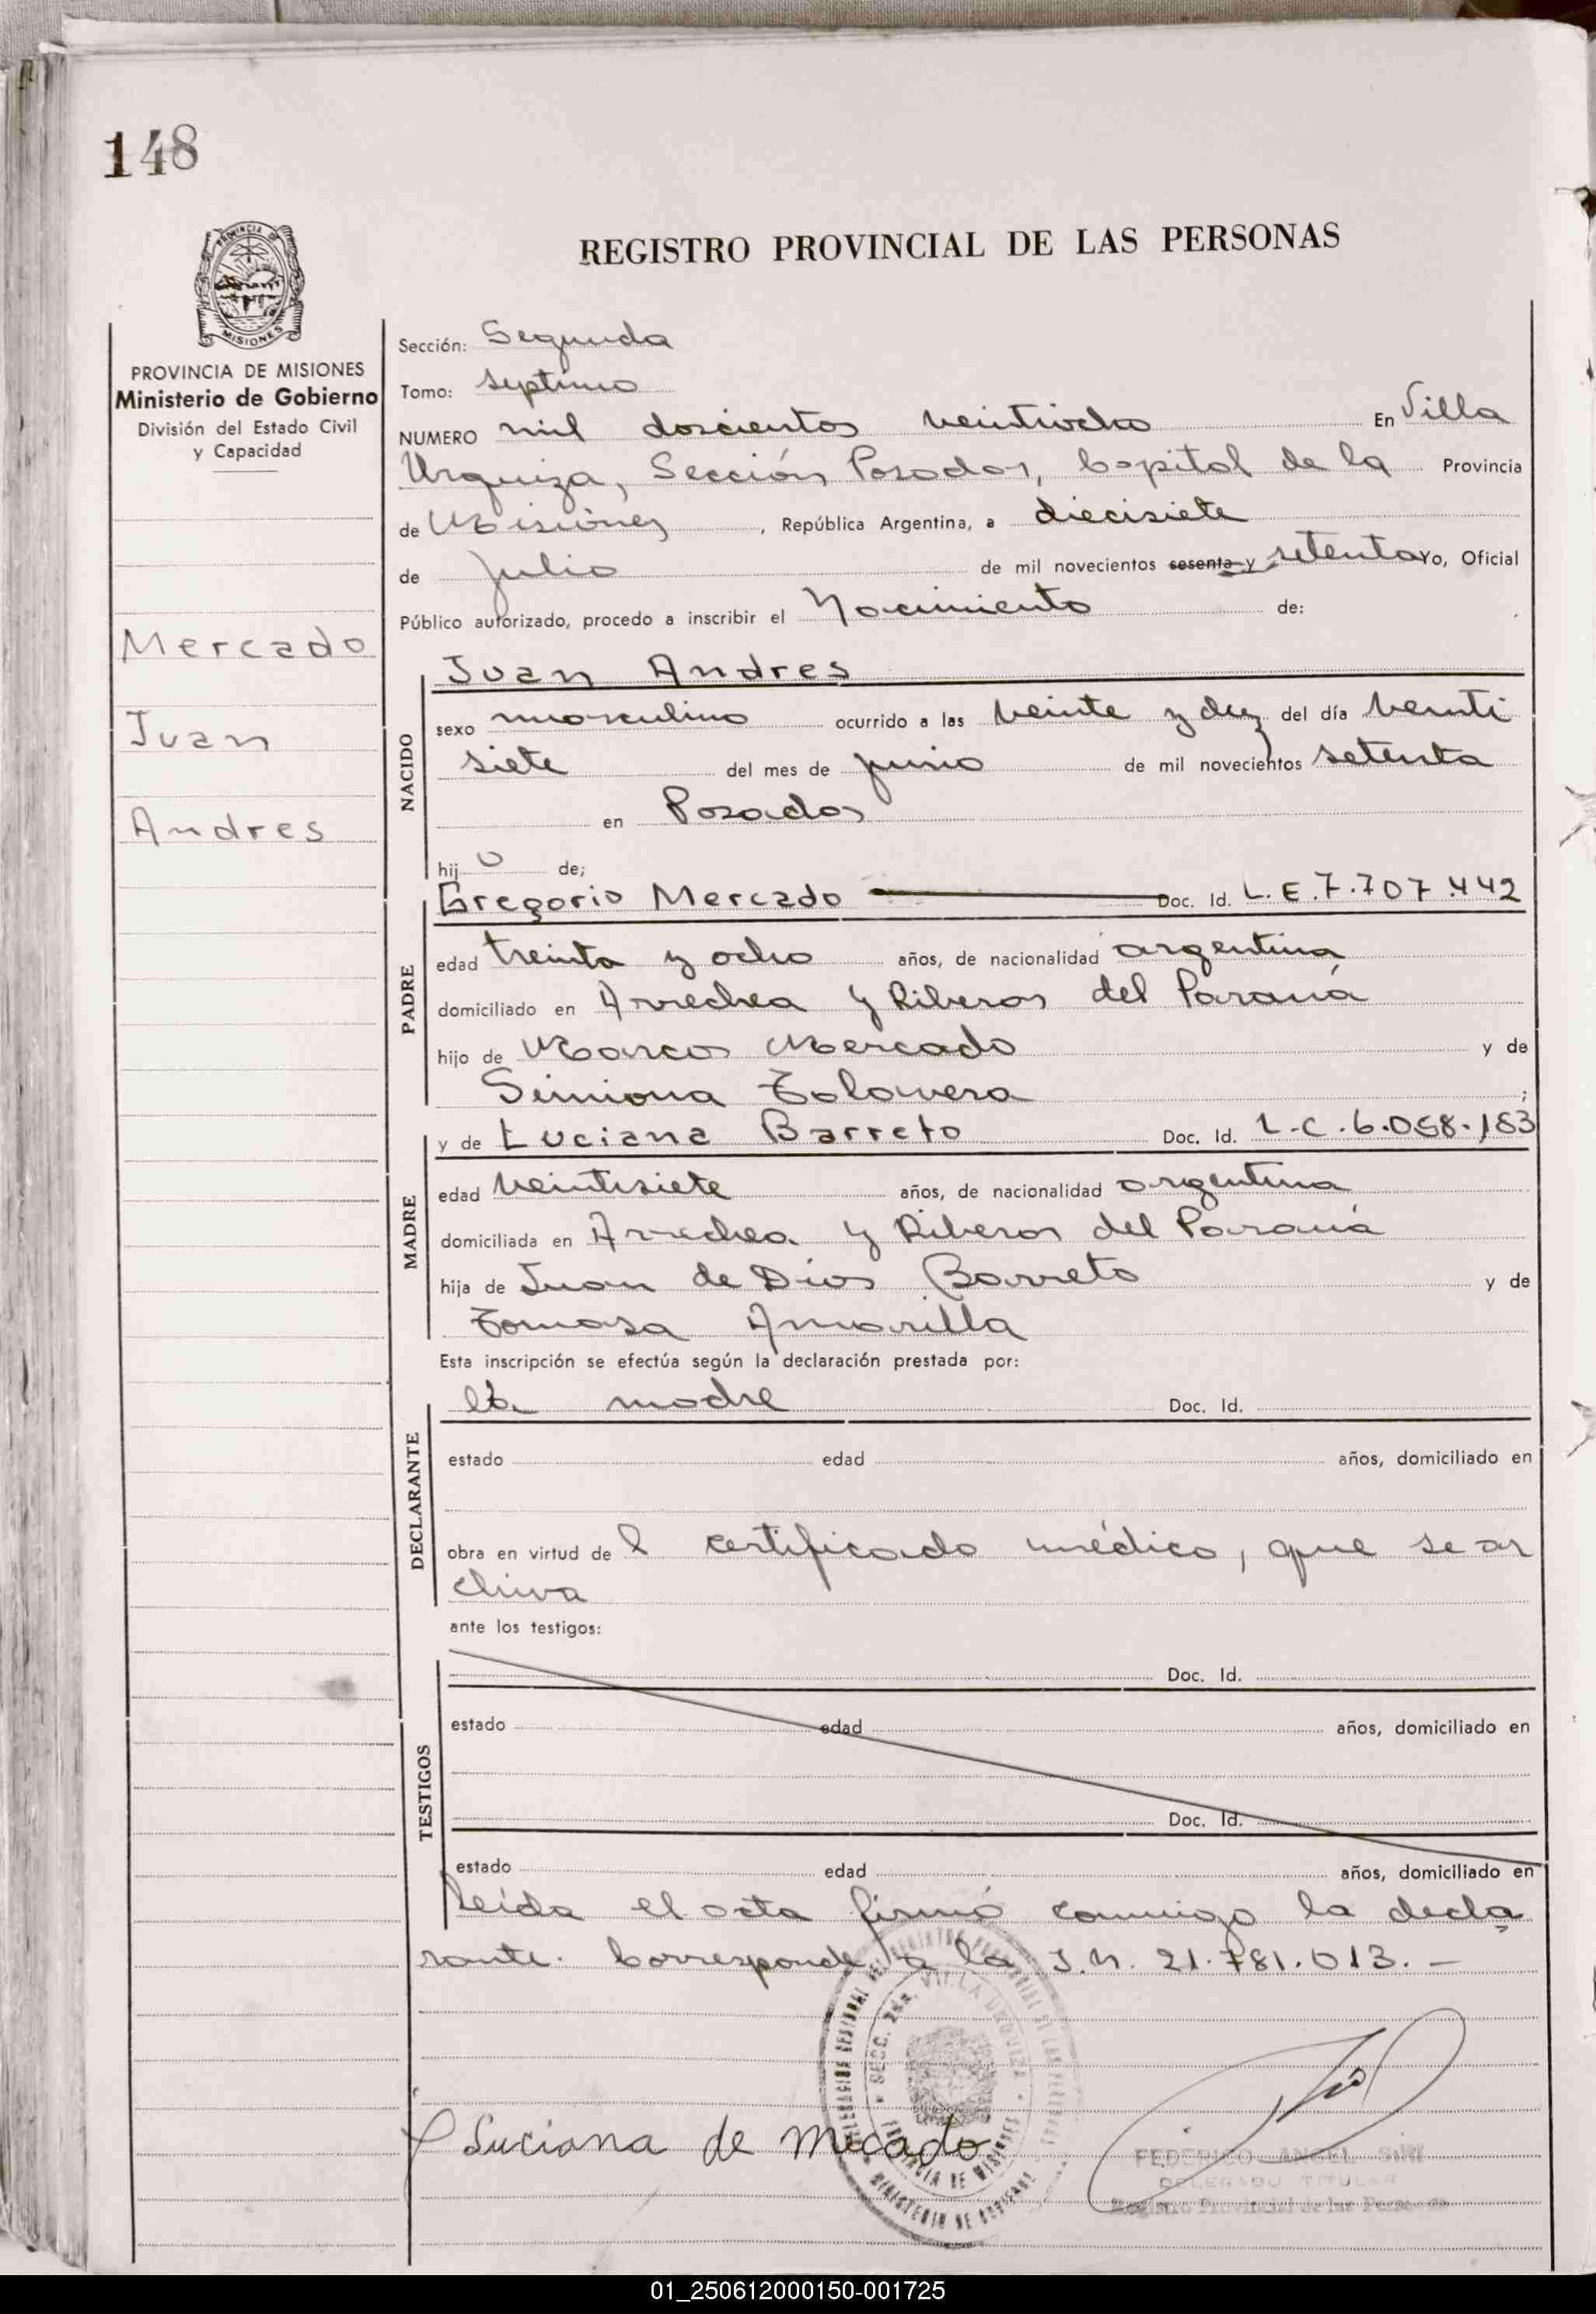 148
REGISTRO PROVINCIAL DE LAS PERSONAS
PROVINCIA DE
MISIONES
PROVINCIA DE MISIONES
Ministerio de Gobierno
División del Estado Civil
y Capacidad
Mercado
Juan
Andres
Sección: Segunda
Tomo: septimo
NUMERO mil doscientos veintiocho En Villa
Urquiza, Sección Posadas, Capital de la Provincia
de Misiones, República Argentina, a diecisiete
de Julio de mil novecientos sesenta y setenta Yo, Oficial
Público autorizado, procedo a inscribir el Nacimiento de:
NACIDO
Juan Andres
sexo masculino ocurrido a las veinte y diez del día veinti
siete del mes de junio de mil novecientos setenta
en Posadas
hij o de;
PADRE
Gregorio Mercado Doc. Id. L.E.7.707.442
edad treinta y ocho años, de nacionalidad argentina
domiciliado en Arrechea y Riberas del Paraná
hijo de Marcos Mercado y de
Simiona Talavera ;
MADRE
y de Luciana Barreto Doc. Id. L.C.6.058.183
edad veintisiete años, de nacionalidad argentina
domiciliada en Arrechea y Riberas del Paraná
hija de Juan de Dios Barreto y de
Tomasa Amarilla
Esta inscripción se efectúa según la declaración prestada por:
DECLARANTE
la madre Doc. Id.
estado edad años, domiciliado en
obra en virtud de l certificado médico, que se ar
chiva
ante los testigos:
TESTIGOS
Doc. Id.
estado edad años, domiciliado en
Doc. Id.
estado edad años, domiciliado en
Leída el acta firmó conmigo la decla
rante. Corresponde a la I.N. 21.781.013. —
SECC. 2da. VILLA URQUIZA
PROVINCIA DE MISIONES
MINISTERIO DE GOBIERNO
Luciana de Mecado
FEDERICO ANGEL
DELEGADO TITULAR
Registro Provincial de las Personas
01_250612000150-001725